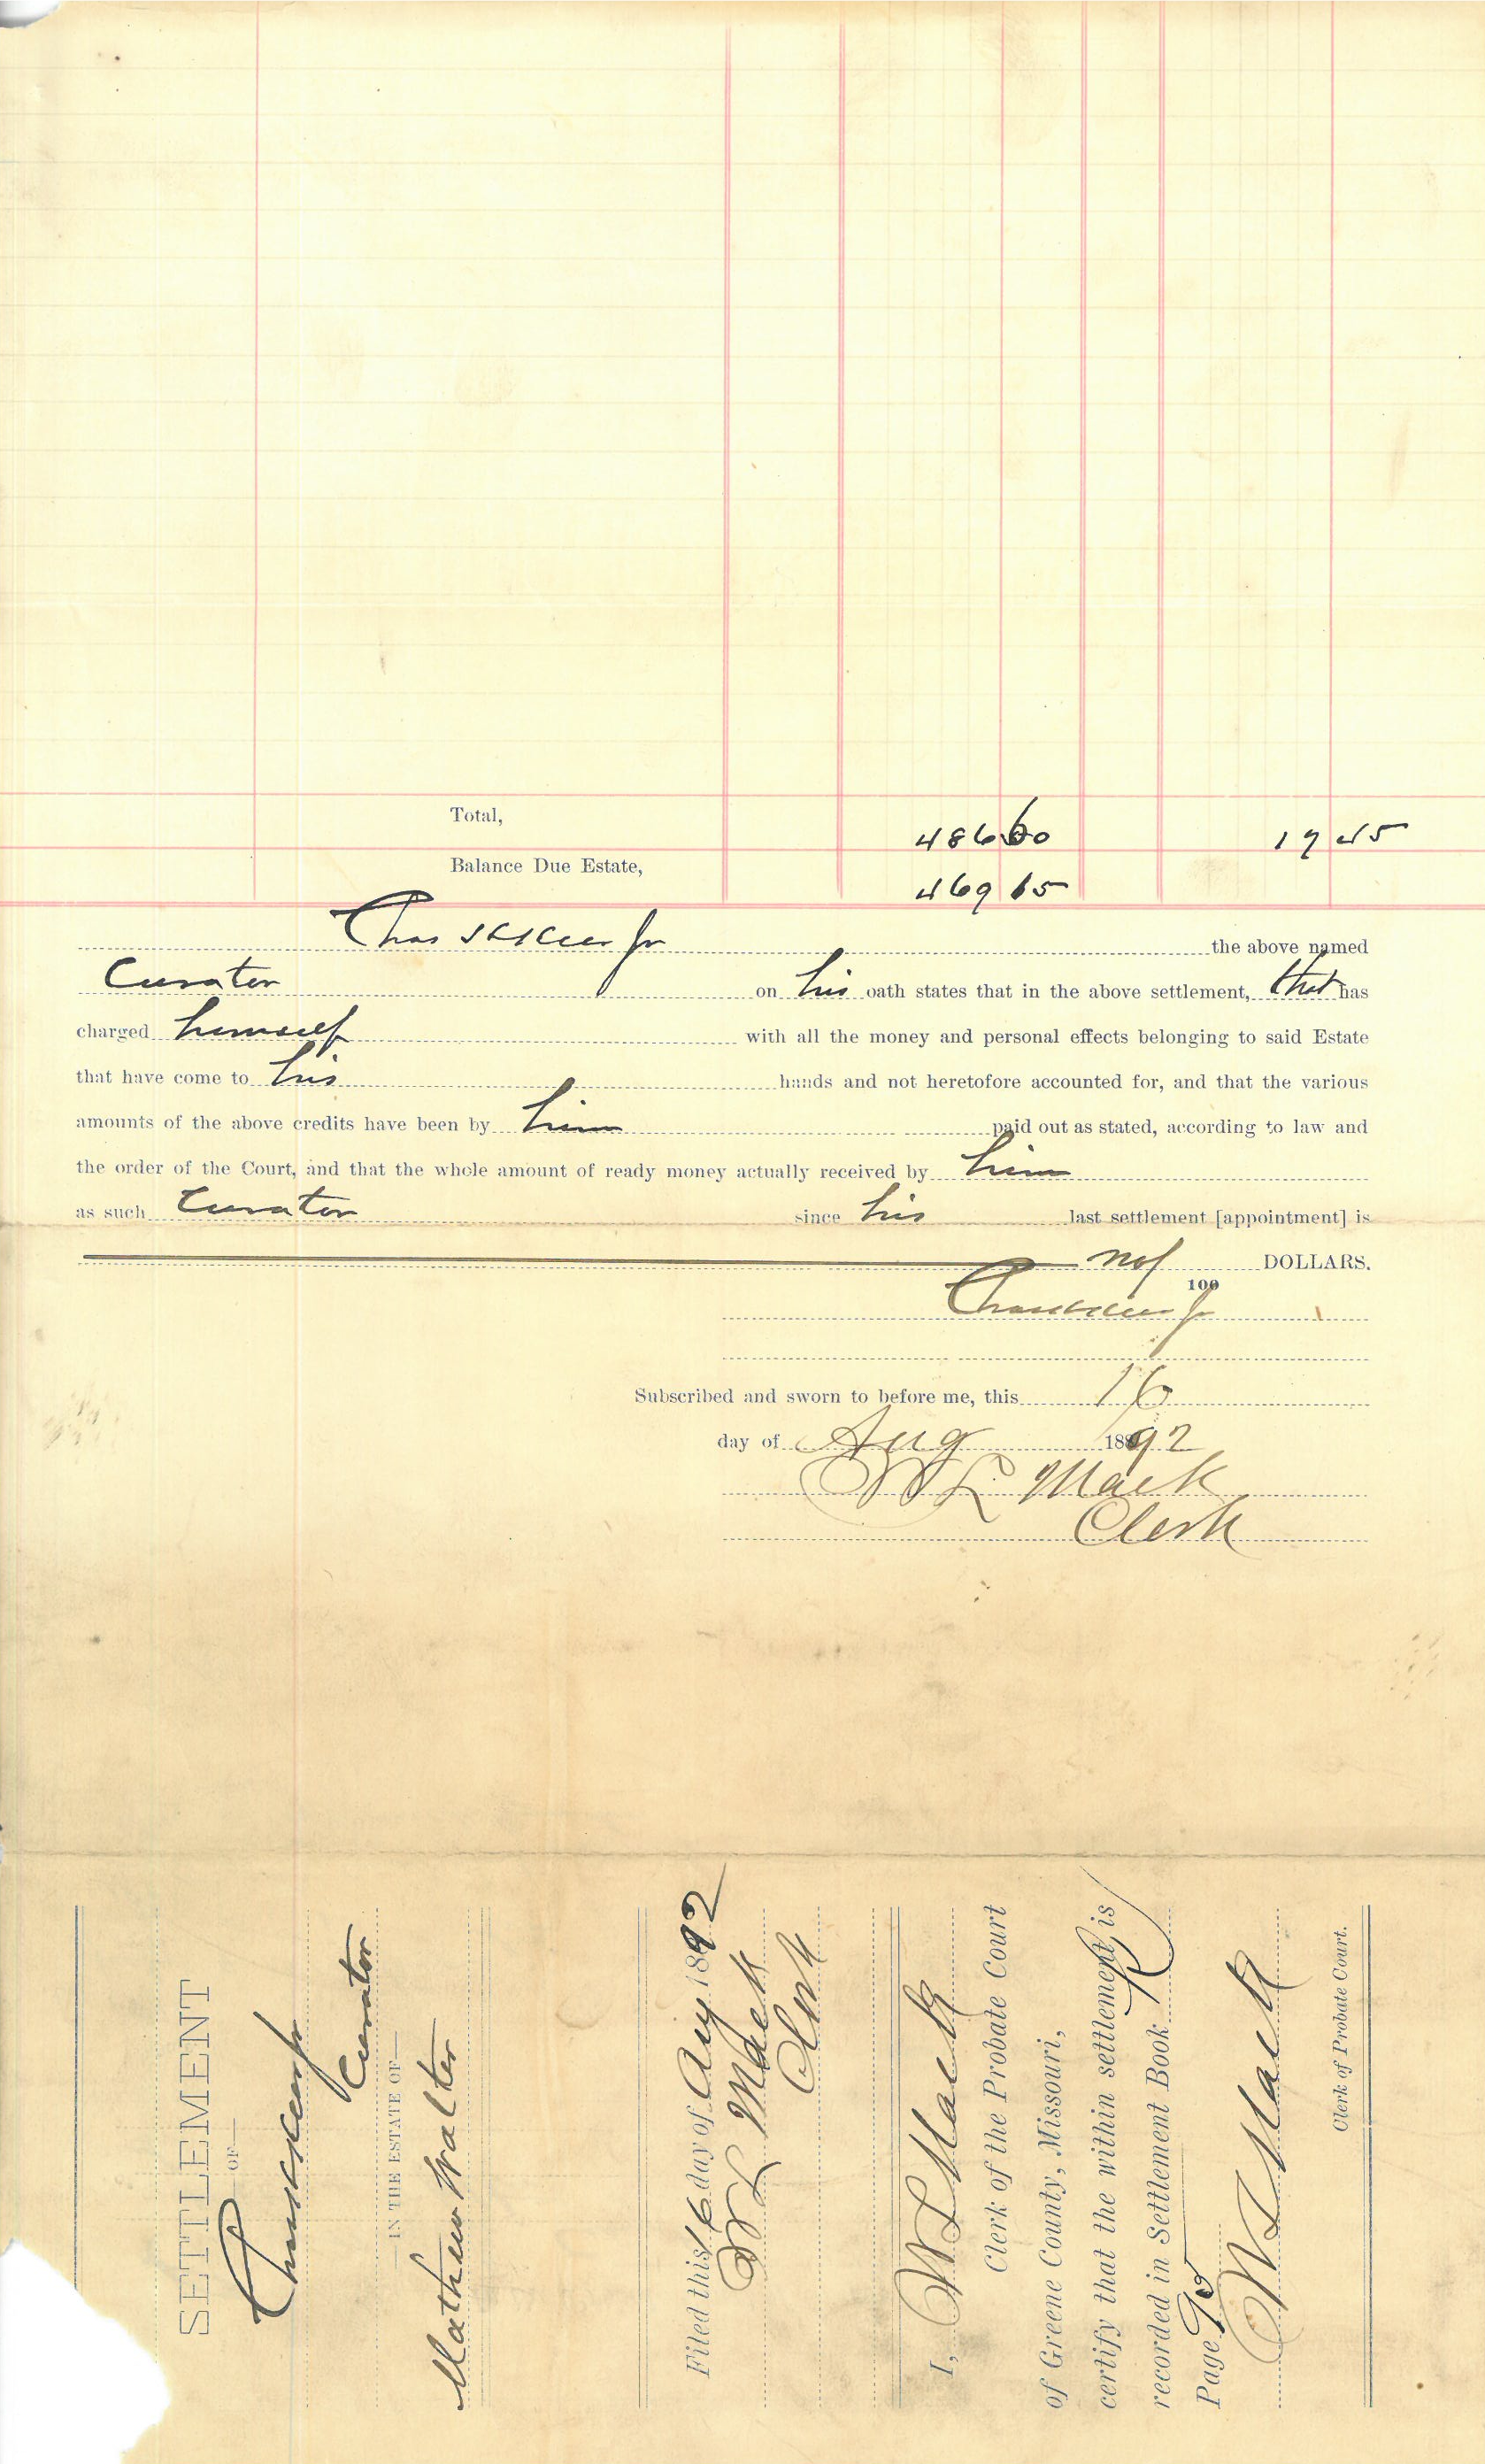 Total, 486 60 17 45
Balance Due Estate, 469 15
Chas Jr the above named
Curator on his oath states that in the above settlement, that has
charged himself with all the money and personal effects belonging to said Estate
that have come to his hands and not heretofore accounted for, and that the various
amounts of the above credits have been by him paid out as stated, according to law and
the order of the Court, and that the whole amount of ready money actually received by him
as such Curator since his last settlement [appointment] is
no/100 DOLLARS.
Chas Jr
Subscribed and sworn to before me, this 16
day of Aug 1892
W L Mack
Clerk
SETTLEMENT
—OF—
Chas Jr
Curator
—IN THE ESTATE OF—
Mathew Walter
Filed this 16 day of Aug 1892
W L Mack
Clerk
I, W L Mack
Clerk of the Probate Court
of Greene County, Missouri,
certify that the within settlement is
recorded in Settlement Book K
Page
W L Mack
Clerk of Probate Court.